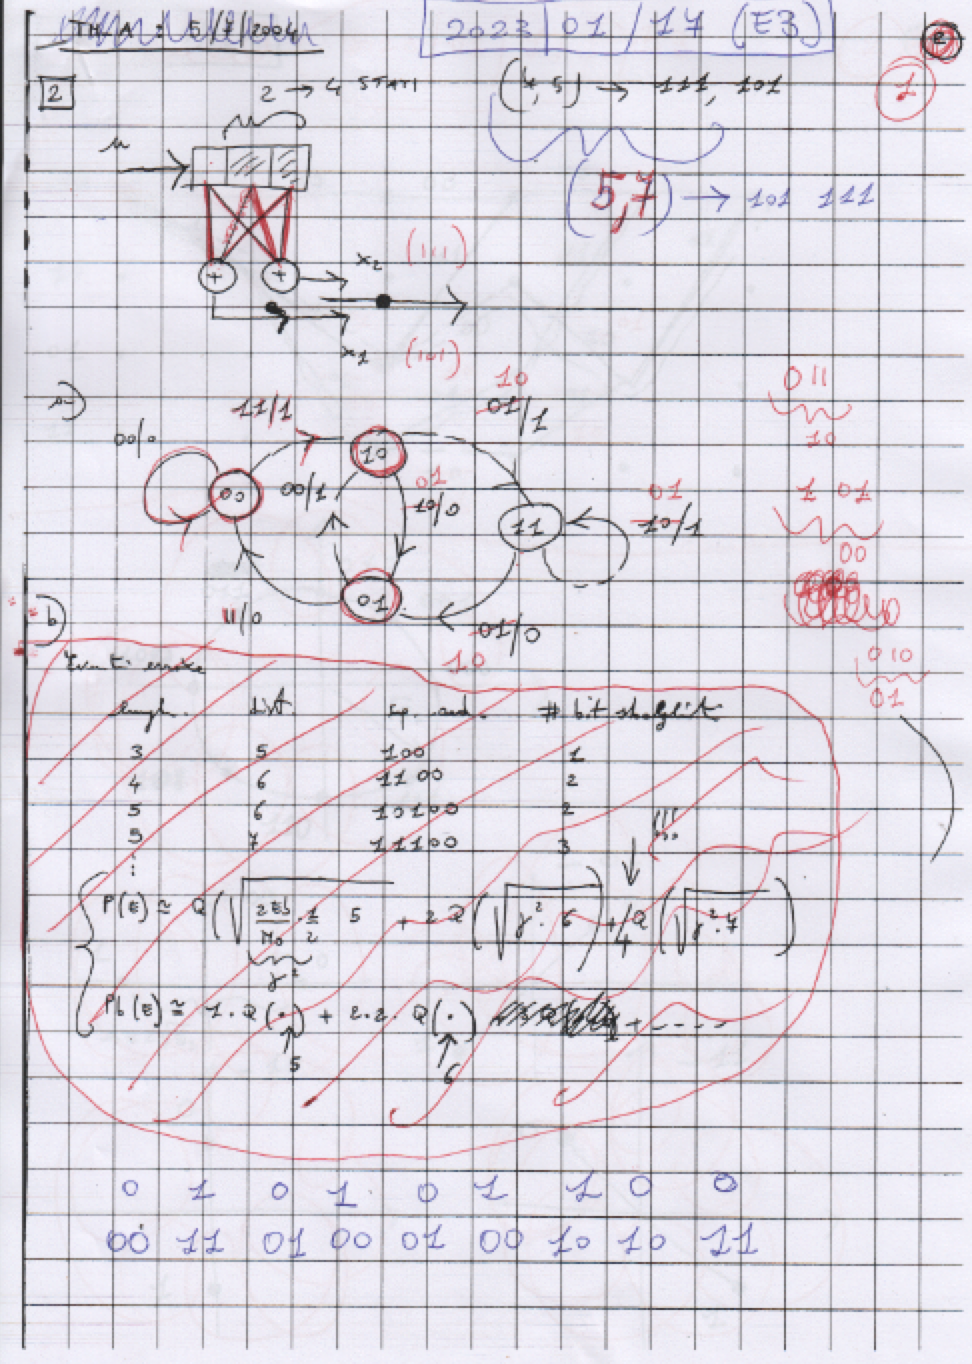 TH/A : 5/7/2004
2023 01/17 (E3)
2
1
2 → 4 STATI
(4,5) → 111, 101
(5,7) → 101 111
u
+ +
x2 (111)
x1 (101)
a)
11/1
10
01/1
00/0
00
10
00/1
01
10/0
11
01
10/1
01
11/0
01/0
10
011
10
1 01
00
010
01
b)
Eventi errore
lungh. dist. # bit sbagliati
3 5 100 1
4 6 1100 2
5 6 10100 2
5 7 11100 3
⋮
!!!
P(E) ≅ Q(√(2Eb/N0 · 1/2 · 5)) + 2 Q(√(γ² · 6)) + 4 Q(√(γ² · 7))
γ²
Pb(E) ≅ 1 · Q(·) + 2 · 2 · Q(·) + ----
5 6
0 1 0 1 0 1 1 0 0
00 11 01 00 01 00 10 10 11